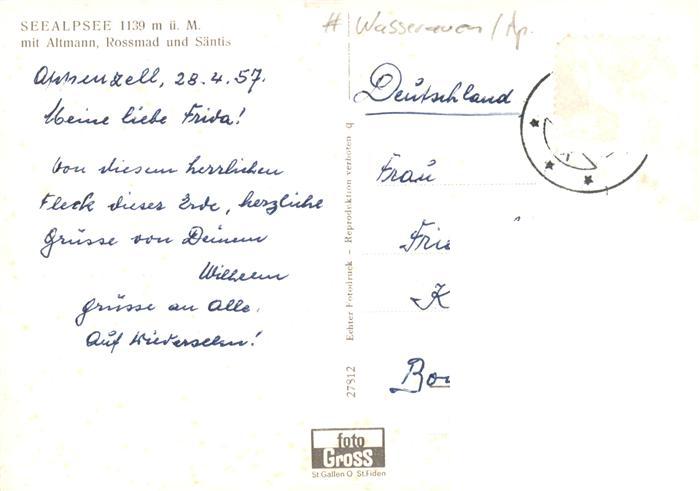 SEEALPSEE 1139 m ü. M.
mit Altmann, Rossmad und Säntis
# Wasserauen / Ap.
Appenzell, 28.4.57.
Meine liebe Frida!
Von diesem herrlichen
Fleck dieser Erde, herzliche
Grüsse von Deinem
Wilhelm
Grüsse an Alle.
Auf Wiedersehn!
27812 Echter Fotodruck - Reproduktion verboten q
Deutschland
Frau
Fri
K
Bo
foto
Gross
St.Gallen O St.Fiden